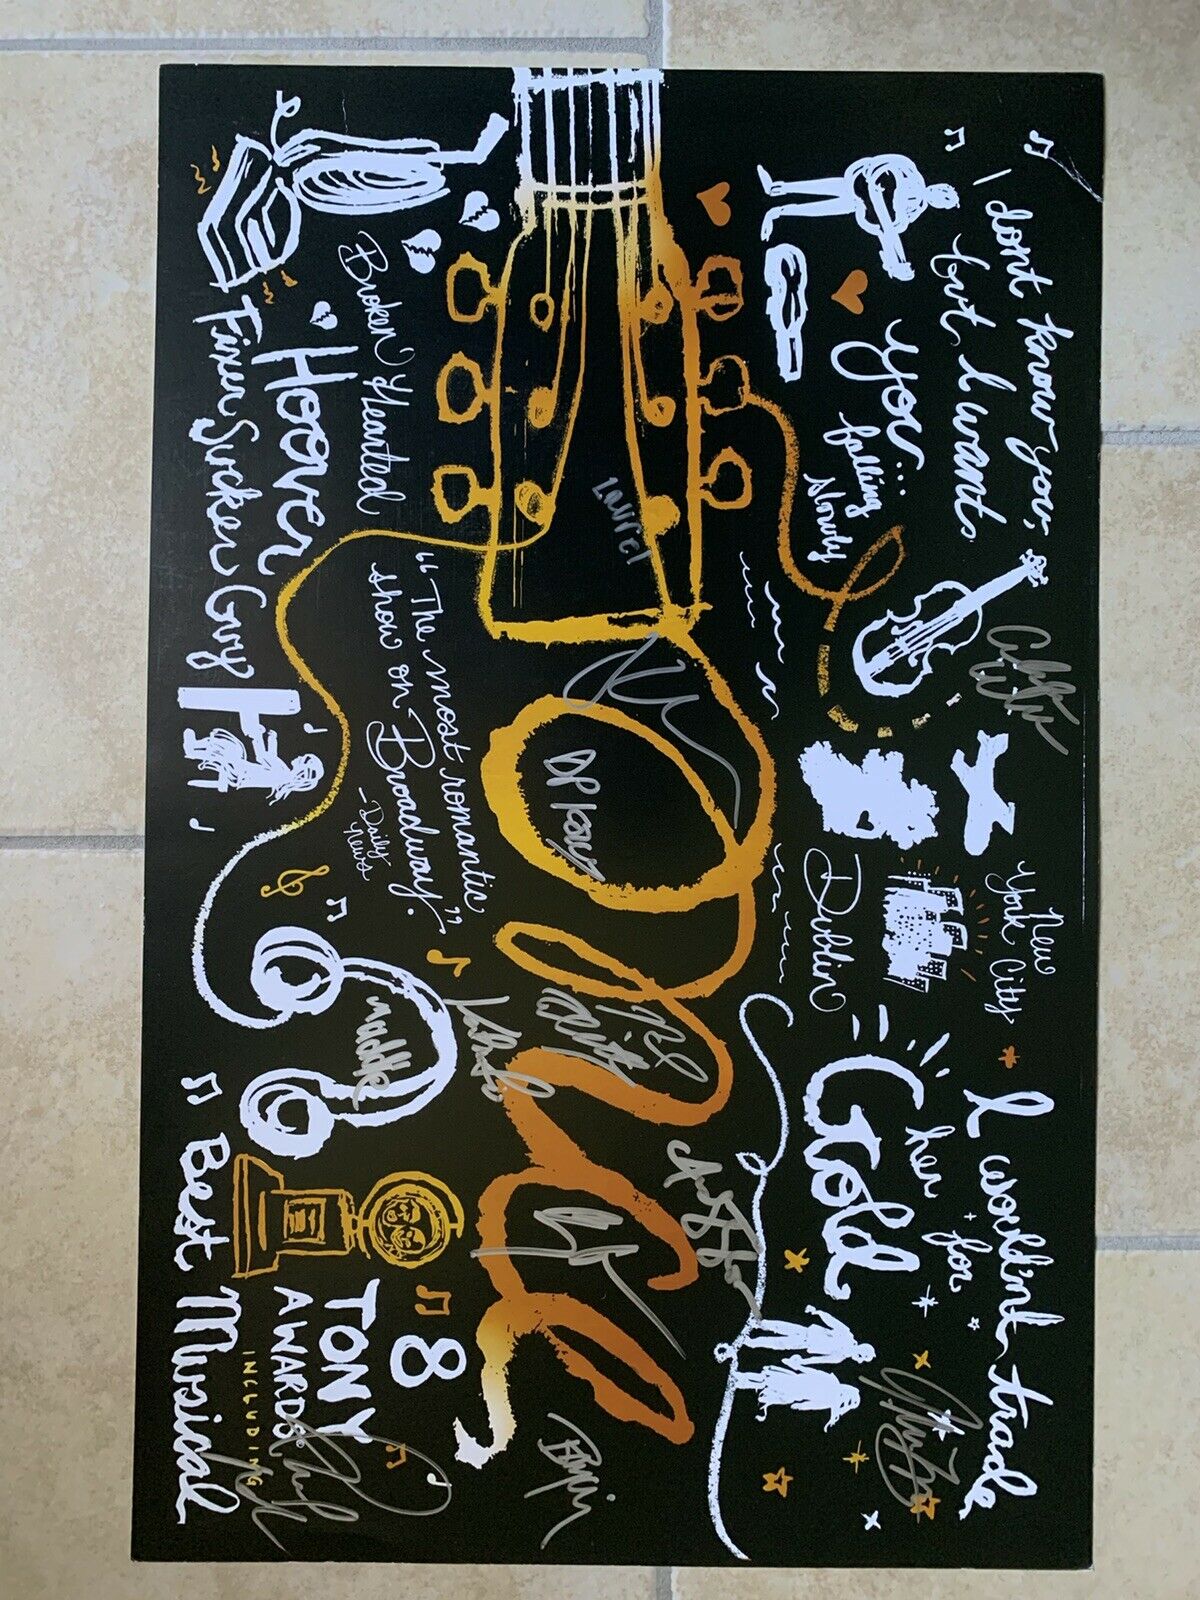 I don't know you,
but I want
you...
falling
slowly
New
York City
Dublin
I wouldn't trade
her for
Gold
Once
Laurel
Broken Hearted
Hoover
Fixer Sucker Guy
"The most romantic
show on Broadway."
-Daily
News
8
TONY
AWARDS®
INCLUDING
Best Musical